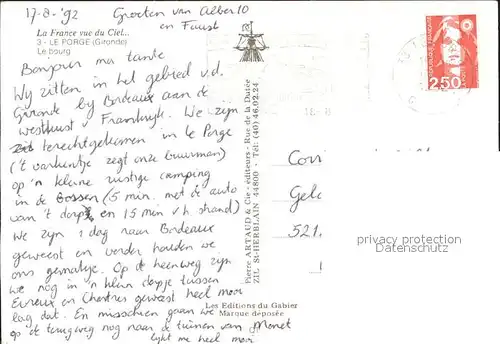 17-8-'92
Groeten van Albert O
en Faust
La France vue du Ciel...
3 - LE PORGE (Gironde)
Le bourg
Bonjour ma tante
Wij zitten in het gebied v.d.
Gironde bij Bordeaux aan de
westkust v Frankrijk. We zijn
terechtgekomen in le Porge
('t varkentje zegt onze buurman)
op 'n kleine rustige camping
in de bossen (5 min. met de auto
van 't dorp en 15 min v h. strand)
We zijn 1 dag naar Bordeaux
geweest en verder houden we
ons gemakje. Op de heenweg zijn
we nog in 'n klein dorpje tussen
Evreux en Chartres geweest heel mooi
lag dat. En misschien gaan we
op de terugweg nog naar de tuinen van Monet
lijkt me heel mooi
Pierre ARTAUD & Cie - éditeurs - Rue de la Dutée
ZIL St-HERBLAIN 44800 - Tél: (40) 46.02.24
Les Editions du Gabier
Marque déposée
REPUBLIQUE FRANÇAISE
2,50
LA POSTE
18-8
Corr
Gel
521
privacy protection
Datenschutz